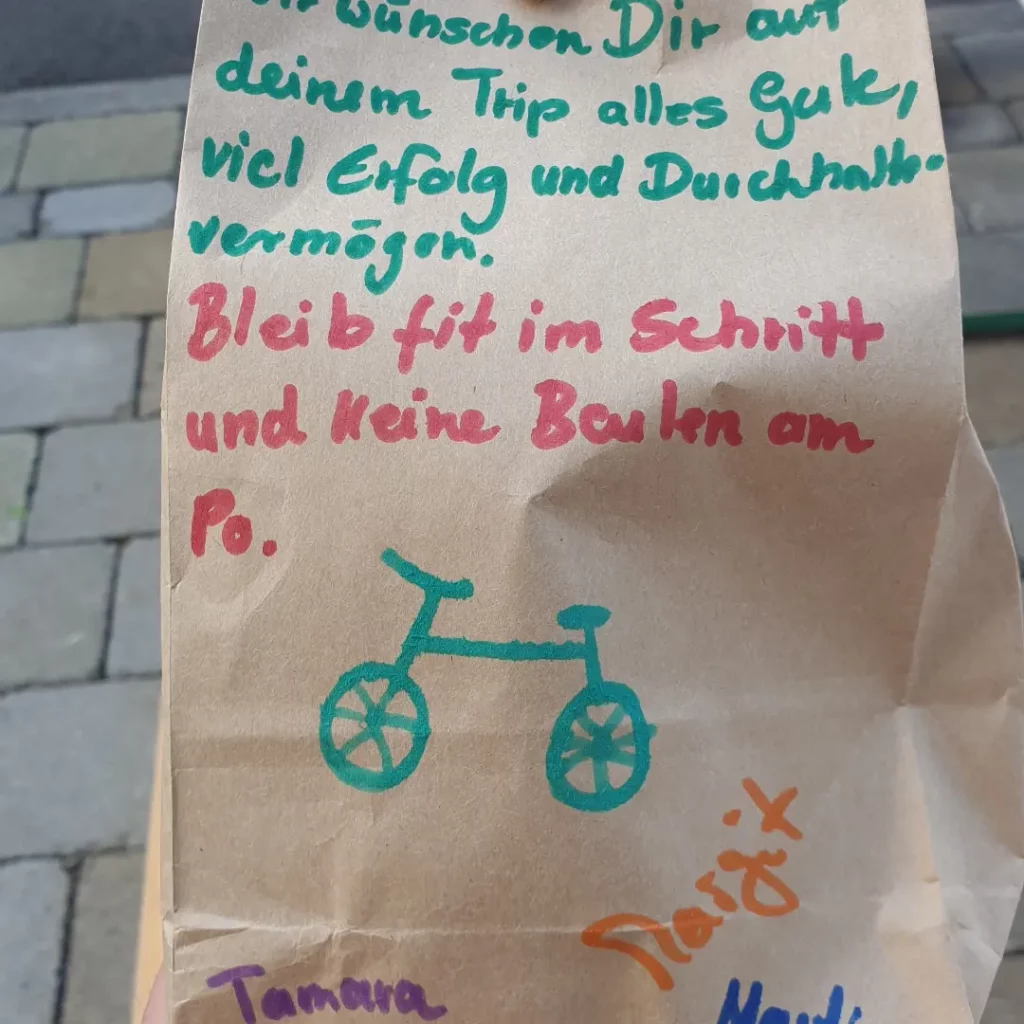 wünschen Dir auf
deinem Trip alles Gute,
viel Erfolg und Durchhalte-
vermögen.
Bleib fit im Schritt
und keine Beulen am
Po.
Tamara